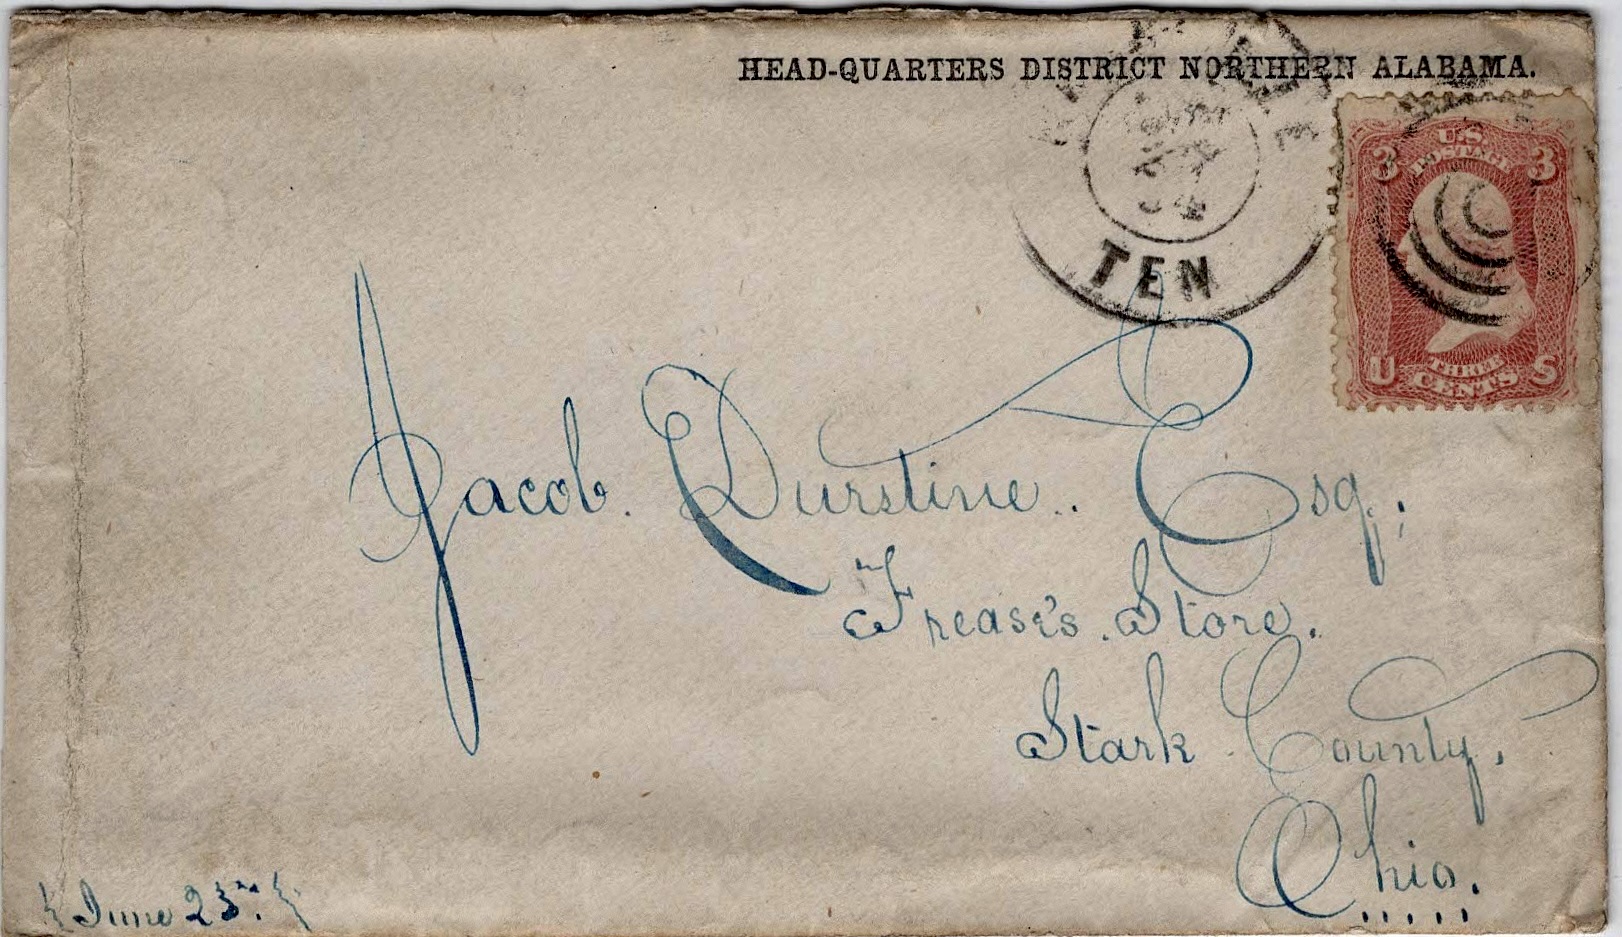 HEAD-QUARTERS DISTRICT NORTHERN ALABAMA.
TEN
U.S. POSTAGE
3 3
U THREE CENTS S
Jacob. Durstine.. Esq.;
Frease's. Store.
Stark County,
Ohio.
June 23rd.